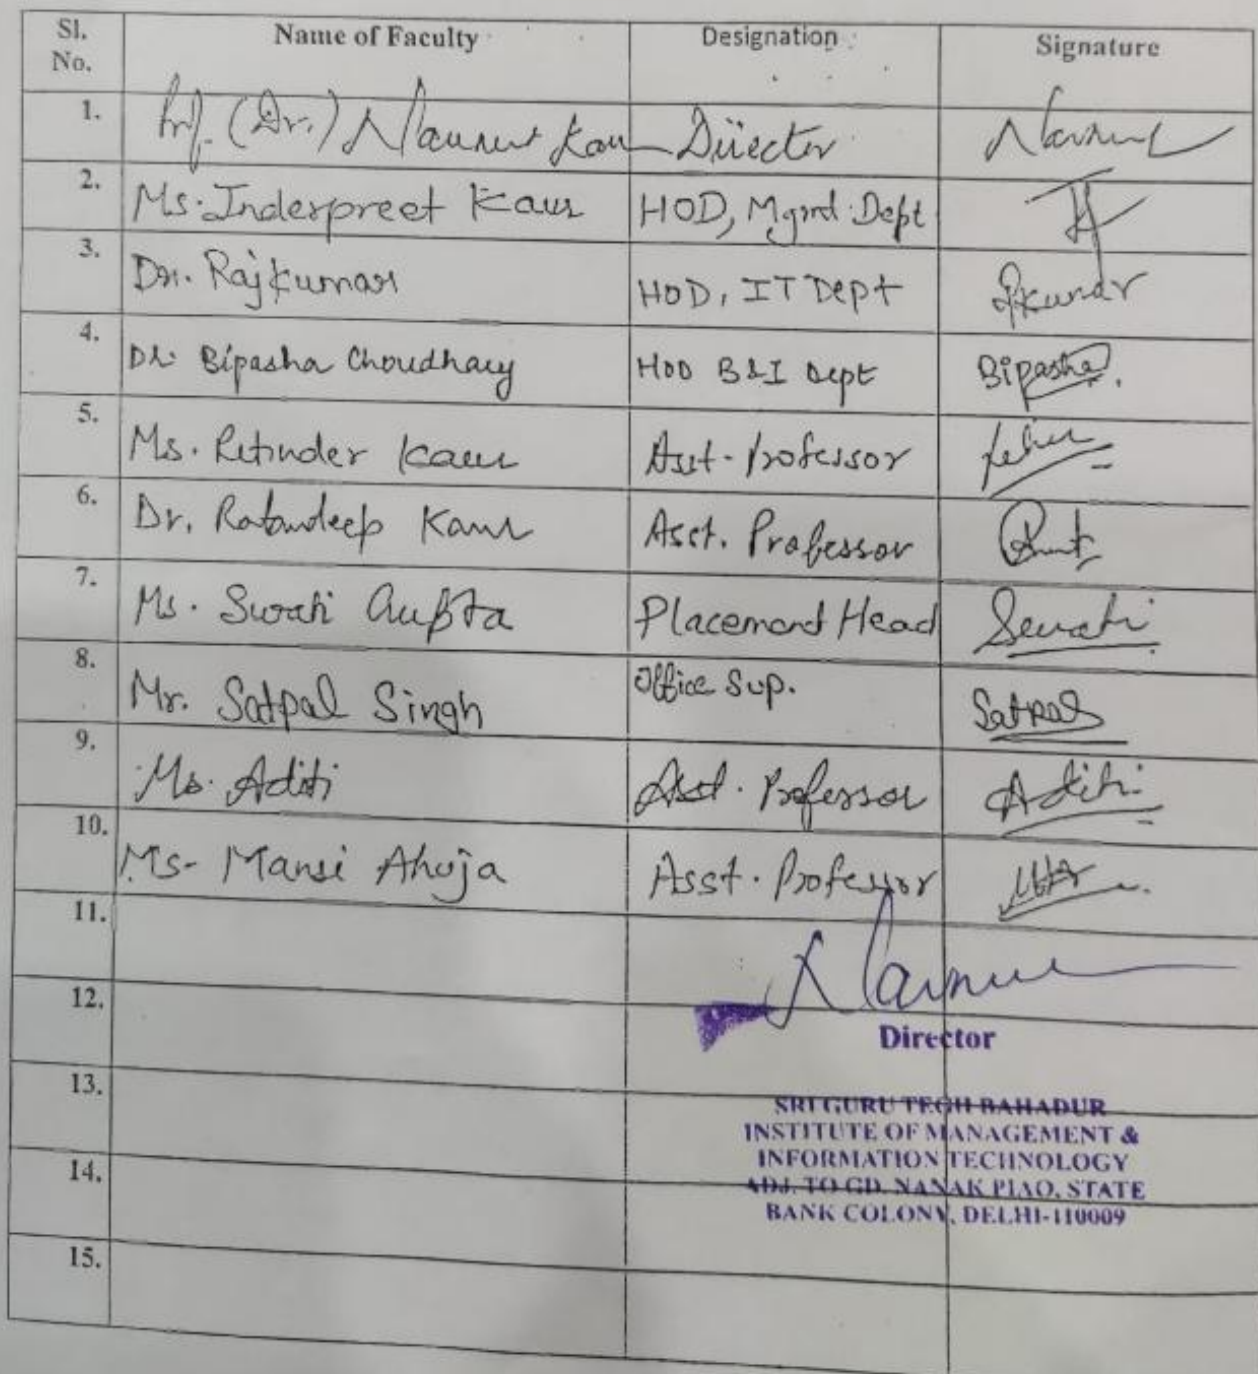 Sl. No. Name of Faculty Designation Signature
1. Prof. (Dr.) Navneet Kaur Director
2. Ms. Inderpreet Kaur HOD, Mgmt Dept
3. Dr. Rajkumar HOD, IT Dept Rkumar
4. Dr. Bipasha Choudhary HOD B&I Dept Bipasha
5. Ms. Retinder Kaur Asst. Professor
6. Dr. Ratandeep Kaur Asst. Professor
7. Ms. Swati Gupta Placement Head Swati
8. Mr. Satpal Singh Office Sup. Satpal
9. Ms. Aditi Asst. Professor Aditi
10. Ms- Mansi Ahuja Asst. Professor
11.
12.
Director
13.
SRI GURU TEGH BAHADUR
INSTITUTE OF MANAGEMENT &
INFORMATION TECHNOLOGY
14.
ADJ. TO GD. NANAK PIAO, STATE
BANK COLONY, DELHI-110009
15.